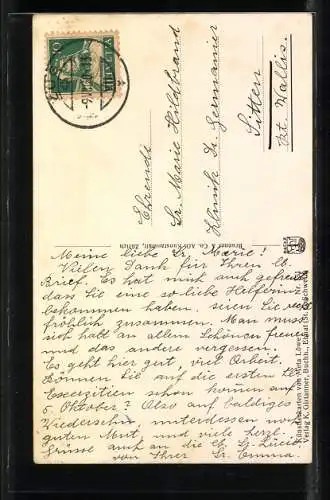 Ehrende
Sr. Marie Hildbrand
Klinik Dr. Germanier
Sitten
Kt. Wallis.
HELVETIA
10
Brunner & Co. A.G. Kunstanstalt, Zürich
Künstlerkarten von Meta Löwe
Verlag K. Gantanner, Buchh., Ebnat (St. G.) Schweiz
Meine liebe Sr. Marie!
Vielen Dank für Ihren lb.
Brief. Es hat mich auch gefreut
dass Sie eine so liebe Helferin
bekommen haben. seien Sie recht
fröhlich zusammen. Man muss
sich halt an allem Schönen freuen
und das andere vergessen.
Es geht hier gut, viel Arbeit.
Können Sie auf die ersten
Exerzitien schon kommen auf
5. Oktober? Also auf baldiges
Wiedersehn unterdessen
guten Mut und viele herzl.
Grüsse auch an die lb. Sr. Lucia
von Ihrer Sr. Emma.